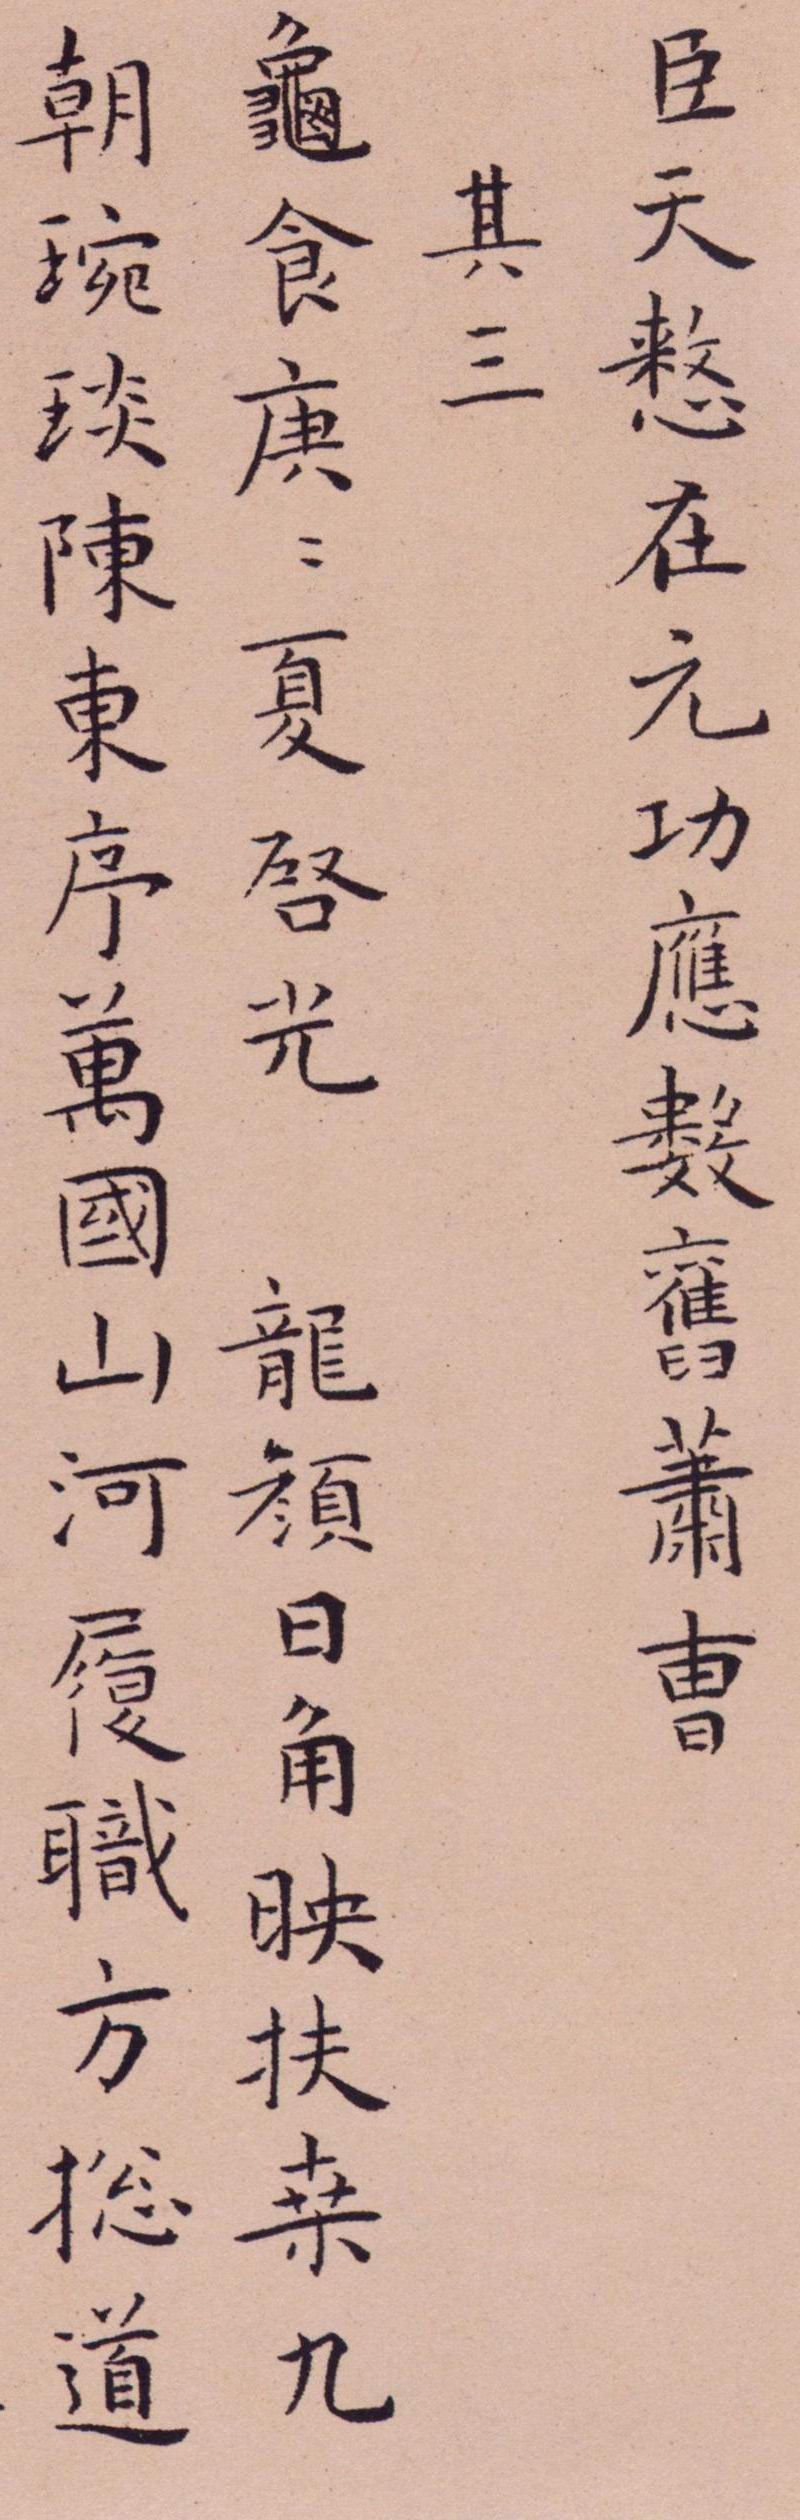 臣天憖在元功應數舊蕭曹
其三
龜食庚〻夏啓光　龍顏日角映扶桒九
朝琬琰陳東序萬國山河履職方揔道